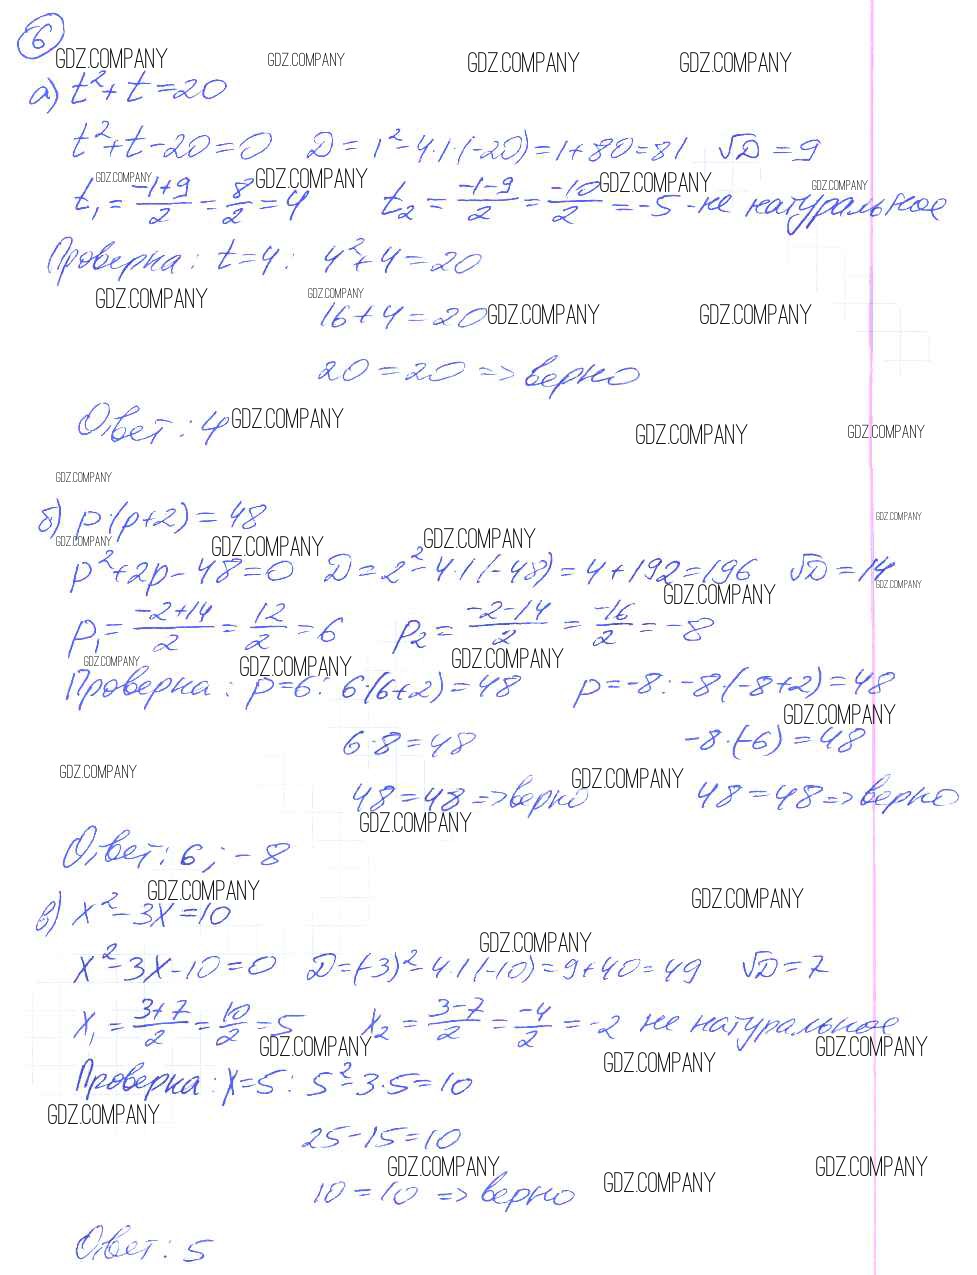 6
GDZ.COMPANY GDZ.COMPANY GDZ.COMPANY GDZ.COMPANY
а) t²+t=20
t²+t-20=0 D=1²-4·1·(-20)=1+80=81 √D=9
GDZ.COMPANY GDZ.COMPANY GDZ.COMPANY GDZ.COMPANY
t₁=(-1+9)/2=8/2=4 t₂=(-1-9)/2=-10/2=-5 - не натуральное
Проверка: t=4: 4²+4=20
GDZ.COMPANY GDZ.COMPANY
16+4=20 GDZ.COMPANY GDZ.COMPANY
20=20 => верно
Ответ: 4 GDZ.COMPANY
GDZ.COMPANY GDZ.COMPANY
GDZ.COMPANY
б) p·(p+2)=48 GDZ.COMPANY
GDZ.COMPANY GDZ.COMPANY GDZ.COMPANY
p²+2p-48=0 D=2²-4·1(-48)=4+192=196 √D=14
GDZ.COMPANY GDZ.COMPANY
p₁=(-2+14)/2=12/2=6 p₂=(-2-14)/2=-16/2=-8
GDZ.COMPANY GDZ.COMPANY GDZ.COMPANY
Проверка: p=6: 6·(6+2)=48 p=-8: -8·(-8+2)=48
GDZ.COMPANY
6·8=48 -8·(-6)=48
GDZ.COMPANY GDZ.COMPANY
48=48 => верно 48=48 => верно
GDZ.COMPANY
Ответ: 6; -8
GDZ.COMPANY GDZ.COMPANY
в) x²-3x=10
GDZ.COMPANY
x²-3x-10=0 D=(-3)²-4·1(-10)=9+40=49 √D=7
x₁=(3+7)/2=10/2=5 x₂=(3-7)/2=-4/2=-2 не натуральное
GDZ.COMPANY GDZ.COMPANY GDZ.COMPANY
Проверка: x=5: 5²-3·5=10
GDZ.COMPANY
25-15=10
GDZ.COMPANY GDZ.COMPANY GDZ.COMPANY
10=10 => верно
Ответ: 5